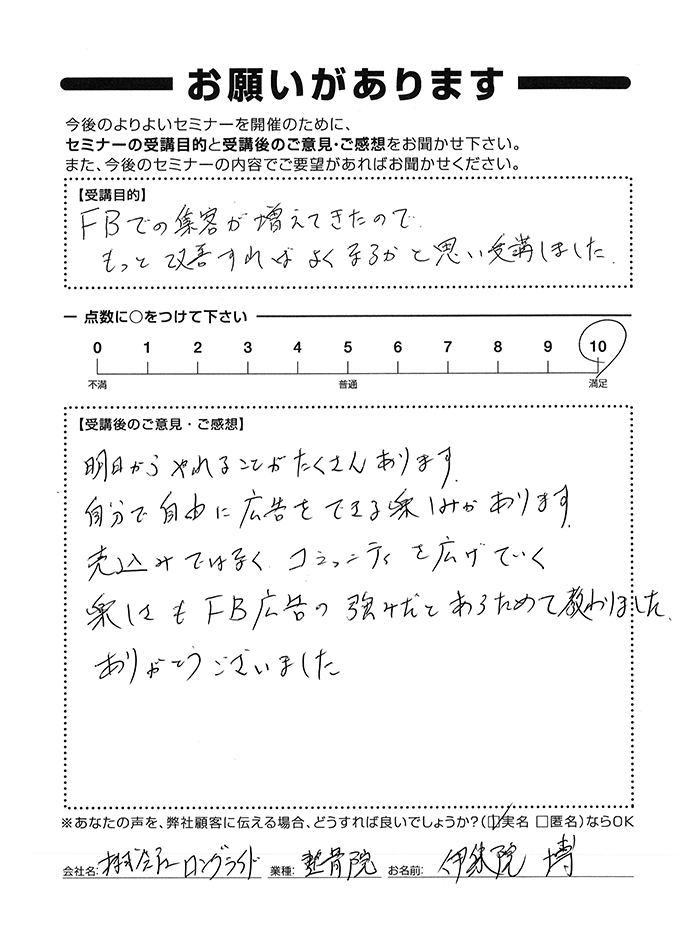 お願いがあります
今後のよりよいセミナーを開催のために、
セミナーの受講目的と受講後のご意見・ご感想をお聞かせ下さい。
また、今後のセミナーの内容でご要望があればお聞かせください。
【受講目的】
FBでの集客が増えてきたので
もっと改善すればよくなるかと思い受講しました
点数に○をつけて下さい
0 1 2 3 4 5 6 7 8 9 10
不満 普通 満足
【受講後のご意見・ご感想】
明日からやれることがたくさんあります
自分で自由に広告をできる楽しみがあります
売込みではなく コミュニティを広げていく
楽しさもFB広告の強みだとあらためて教わりました
ありがとうございました
※あなたの声を、弊社顧客に伝える場合、どうすれば良いでしょうか?(☑実名 □匿名)ならOK
会社名: 株式会社ロングライド 業種: 整骨院 お名前: 伊集院 博